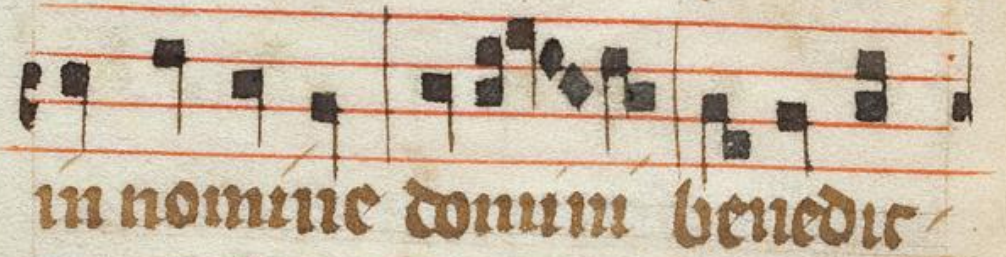 in nomine domini benedic-